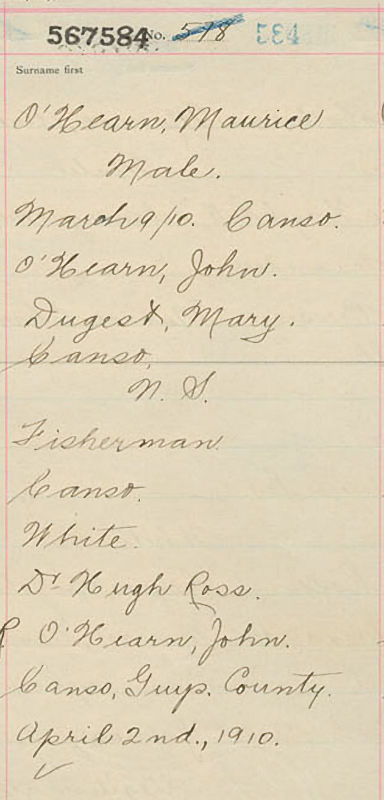 567584 No. 578 584
Surname first
O'Hearn, Maurice
Male.
March 9/10. Canso.
O'Hearn, John.
Dugest, Mary.
Canso,
N. S.
Fisherman
Canso.
White.
Dr Hugh Ross.
R O'Hearn, John.
Canso, Guys. County.
April 2nd., 1910.
✓